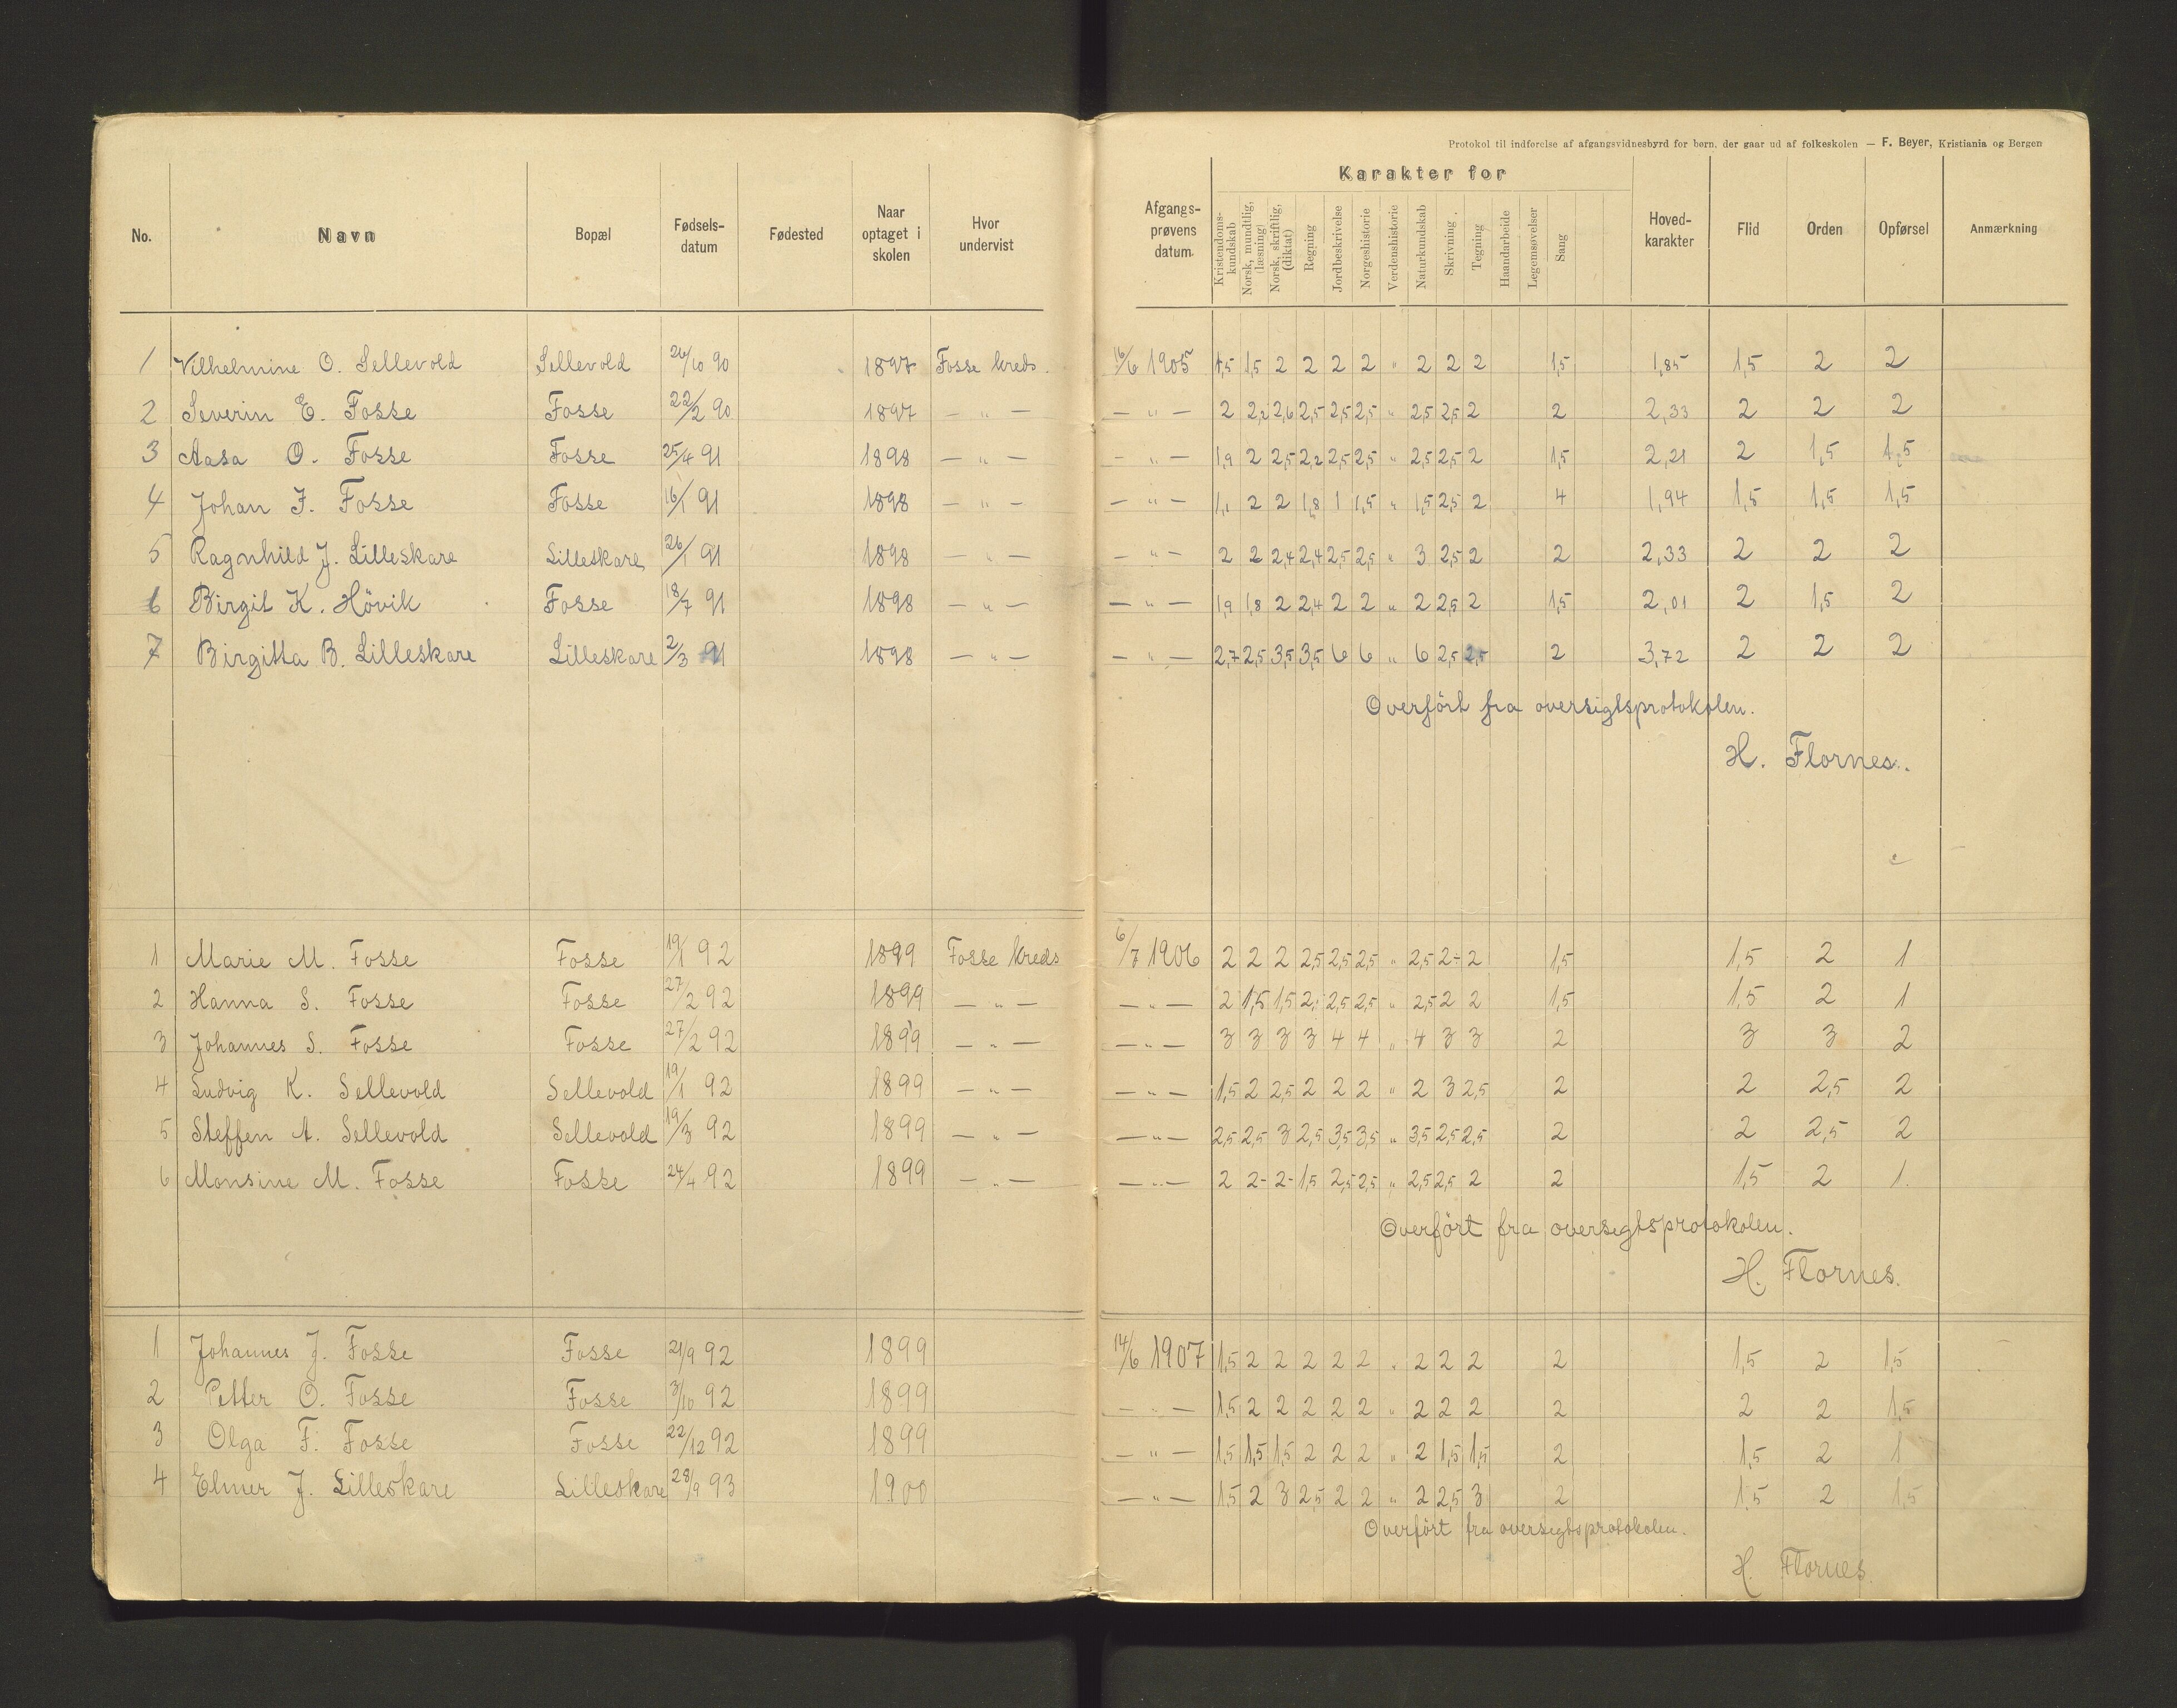 Protokol til indførelse af afgangsvidnesbyrd for børn, der gaar ud af folkeskolen — F. Beyer, Kristiania og Bergen
No. Navn Bopæl Fødsels-datum Fødested Naar optaget i skolen Hvor undervist Afgangs-prøvens datum Karakter for Kristendoms-kundskab Norsk, mundtlig, (læsning) Norsk, skriftlig, (diktat) Regning Jordbeskrivelse Norgeshistorie Verdenshistorie Naturkundskab Skrivning Tegning Haandarbeide Legemsøvelser Sang Hoved-karakter Flid Orden Opførsel Anmærkning
1 Vilhelmine O. Sellevold Sellevold 26/10 90 1897 Fosse kreds. 16/6 1905 1,5 1,5 2 2 2 2 " 2 2 2 1,5 1,85 1,5 2 2
2 Severin E. Fosse Fosse 22/2 90 1897 — " — — " — 2 2,2 2,6 2,5 2,5 2,5 " 2,5 2,5 2 2 2,33 2 2 2
3 Aasa O. Fosse Fosse 25/4 91 1898 — " — — " — 1,9 2 2,5 2,2 2,5 2,5 " 2,5 2,5 2 1,5 2,21 2 1,5 1,5
4 Johan J. Fosse Fosse 16/1 91 1898 — " — — " — 1,1 2 2 1,8 1 1,5 " 1,5 2,5 2 4 1,94 1,5 1,5 1,5
5 Ragnhild J. Lilleskare Lilleskare 26/1 91 1898 — " — — " — 2 2 2,4 2,4 2,5 2,5 " 3 2,5 2 2 2,33 2 2 2
6 Birgit K. Hövik Fosse 18/7 91 1898 — " — — " — 1,9 1,8 2 2,4 2 2 " 2 2,5 2 1,5 2,01 2 1,5 2
7 Birgitta B. Lilleskare Lilleskare 2/3 91 1898 — " — — " — 2,7 2,5 3,5 3,5 6 6 " 6 2,5 2,5 2 3,72 2 2 2
Overført fra oversigtsprotokolen.
H. Flornes.
1 Marie M. Fosse Fosse 19/1 92 1899 Fosse kreds 6/7 1906 2 2 2 2,5 2,5 2,5 " 2,5 2÷ 2 1,5 1,5 2 1
2 Hanna S. Fosse Fosse 27/2 92 1899 — " — — " — 2 1,5 1,5 2 2,5 2,5 " 2,5 2 2 1,5 1,5 2 1
3 Johannes S. Fosse Fosse 27/2 92 1899 — " — — " — 3 3 3 3 4 4 " 4 3 3 2 3 3 2
4 Ludvig K. Sellevold Sellevold 19/1 92 1899 — " — — " — 1,5 2 2,5 2 2 2 " 2 3 2,5 2 2 2,5 2
5 Steffen A. Sellevold Sellevold 19/3 92 1899 — " — — " — 2,5 2,5 3 2,5 3,5 3,5 " 3,5 2,5 2,5 2 2 2,5 2
6 Monsine M. Fosse Fosse 24/4 92 1899 — " — — " — 2 2- 2- 1,5 2,5 2,5 " 2,5 2,5 2 2 1,5 2 1.
Overfört fra oversigtsprotokolen.
H. Flornes.
1 Johannes J. Fosse Fosse 21/9 92 1899 14/6 1907 1,5 2 2 2 2 2 " 2 2 2 2 1,5 2 1,5
2 Petter O. Fosse Fosse 3/10 92 1899 — " — 1,5 2 2 2 2 2 " 2 2 2 2 2 2 1,5
3 Olga F. Fosse Fosse 22/12 92 1899 — " — 1,5 1,5 1,5 2 2 2 " 2 1,5 1,5 2 1,5 2 1
4 Elmer J. Lilleskare Lilleskare 28/9 93 1900 — " — 1,5 2 3 2,5 2 2 " 2 2,5 3 2 1,5 2 1,5
Overfört fra oversigtsprotokolen.
H. Flornes.